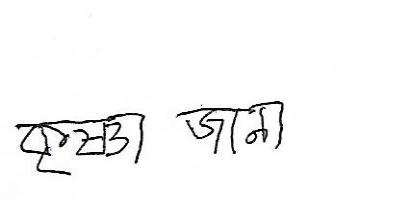 কৃষ্ণা জানা